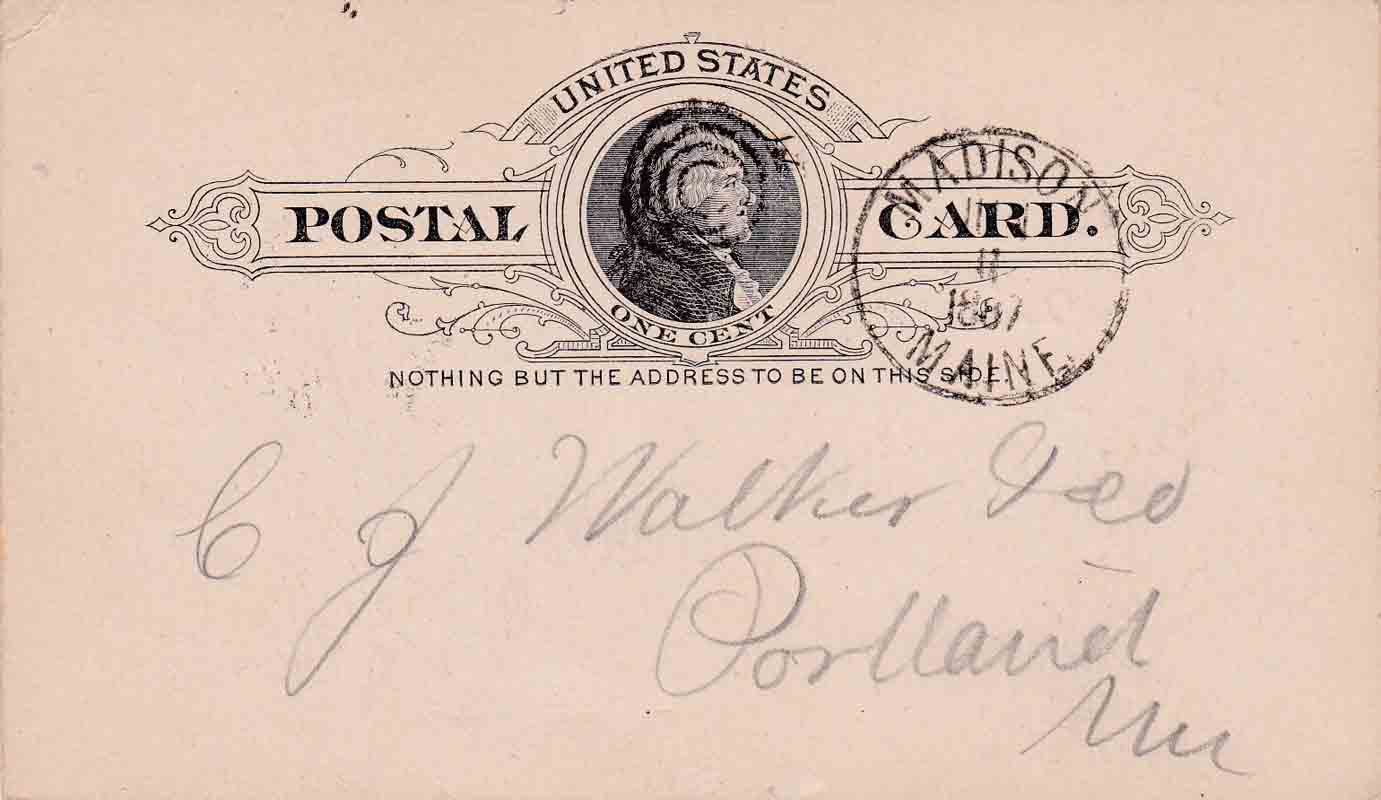 UNITED STATES
POSTAL CARD.
ONE CENT
NOTHING BUT THE ADDRESS TO BE ON THIS SIDE.
MADISON
11
1887
MAINE.
C J Walker
Portland
Me